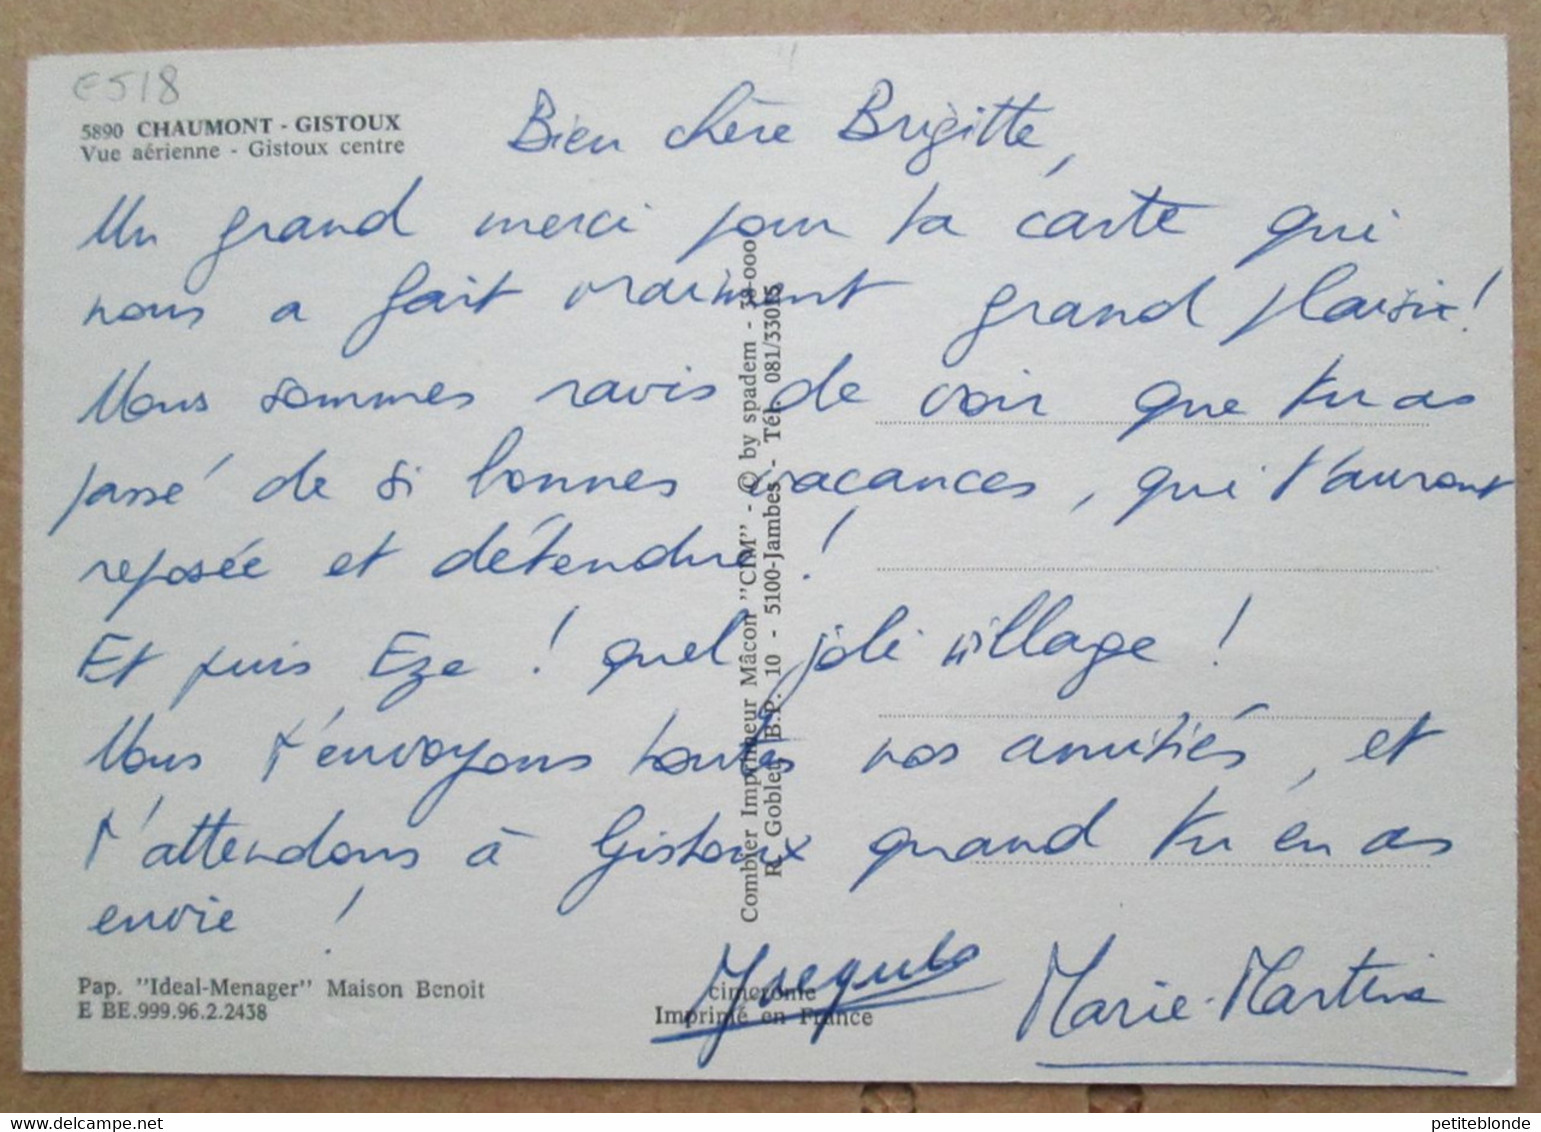 E518
5890 CHAUMONT - GISTOUX
Vue aérienne - Gistoux centre
Bien chère Brigitte,
Un grand merci pour ta carte qui
nous a fait vraiment grand plaisir !
Nous sommes ravis de voir que tu as
passé de si bonnes vacances, qui t'auront
reposée et détendue !
Et puis Eze ! quel joli village !
Nous t'envoyons toutes nos amitiés, et
t'attendons à Gistoux quand tu en as
envie !
Marie-Martine
Pap. "Ideal-Menager" Maison Benoit
E BE.999.96.2.2438
cimcrome
Imprimé en France
Combier Imprimeur Mâcon "CIM" - © by spadem -
R. Goblet B.P. 10 - 5100-Jambes - Tél. 081/33015
petiteblonde